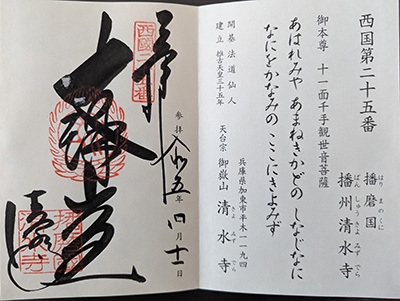 西国第二十五番
播磨国
はり まの くに
播州清水寺
ばん しゅう きよ みず でら
御本尊 十一面千手観世音菩薩
あはれみや あまねきかどの しなじなに
なにをかなみの ここにきよみず
開基 法道仙人
建立 推古天皇三十五年
兵庫県加東市平木一一九四
天台宗 御嶽山 清水寺
きよ みず でら
奉拝
西國二十五番
参拝 令和五年四月十一日
大講堂
清水寺